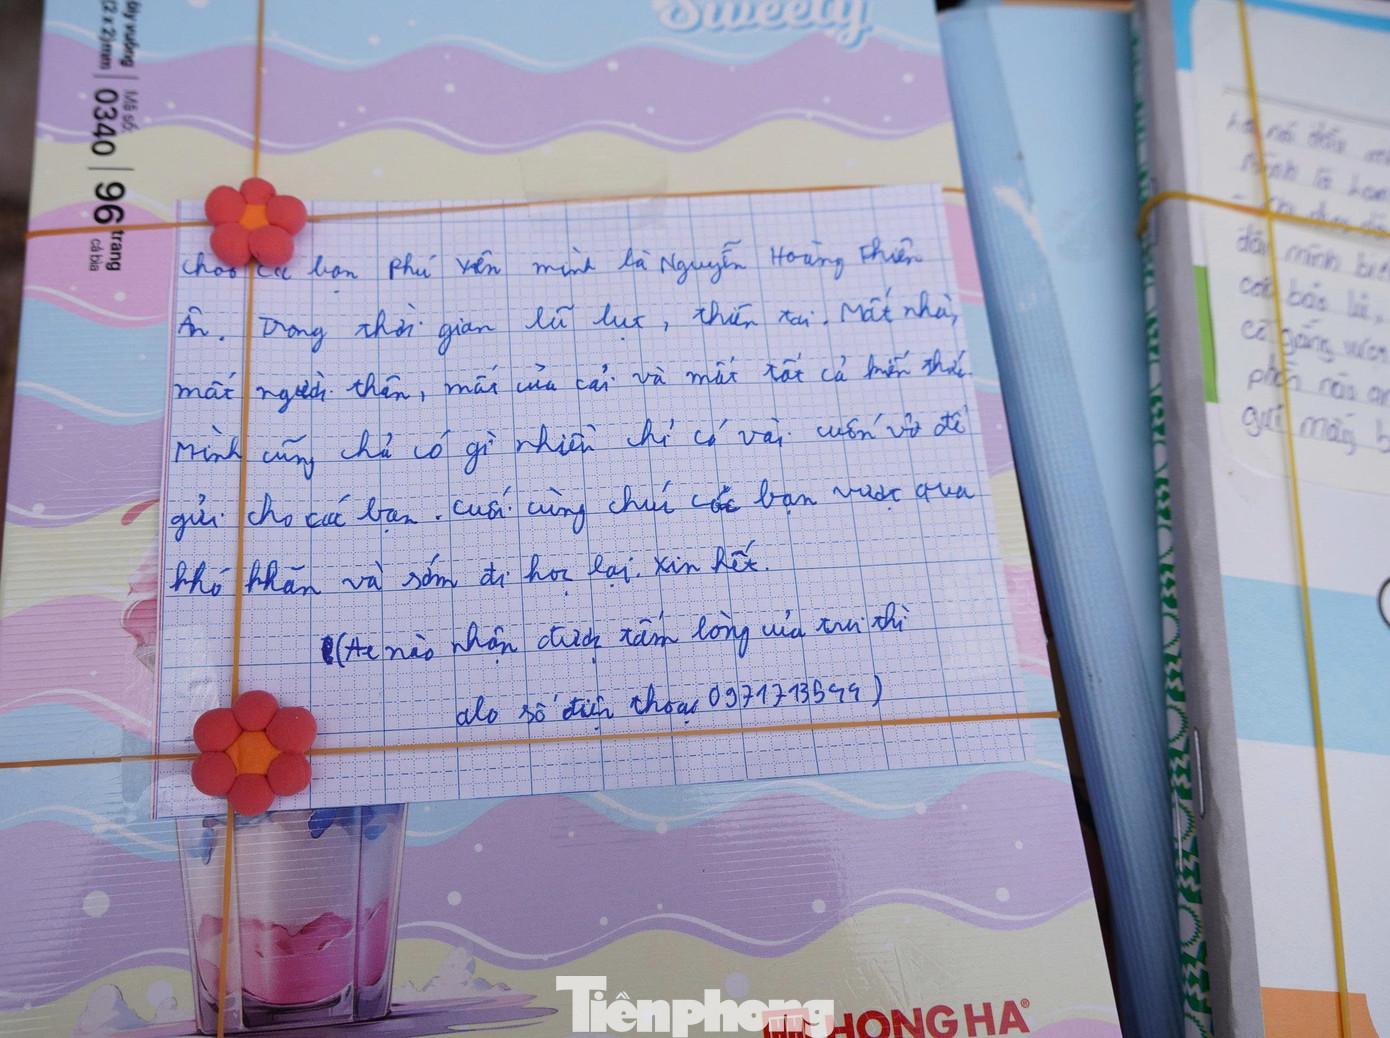 Sweety
ôly vuông
(2 x 2)mm
Mã số:
0340
96
trang
cả bìa
chào các bạn Phú Yên mình là Nguyễn Hoàng Thiên
Ân. Trong thời gian lũ lụt, thiên tai. Mất nhà,
mất người thân, mất của cải và mất tất cả mọi thứ.
Mình cũng chả có gì nhiều chỉ có vài cuốn vở để
gửi cho các bạn. Cuối cùng chúc các bạn vượt qua
khó khăn và sớm đi học lại. Xin hết.
(Ae nào nhận được tấm lòng của tui thì
alo số điện thoại 0971713599)
mình là
dân mình
cơn bão lũ,
cố gắng vươn
phần nào
gửi mấy
Tiênphong
HONG HA